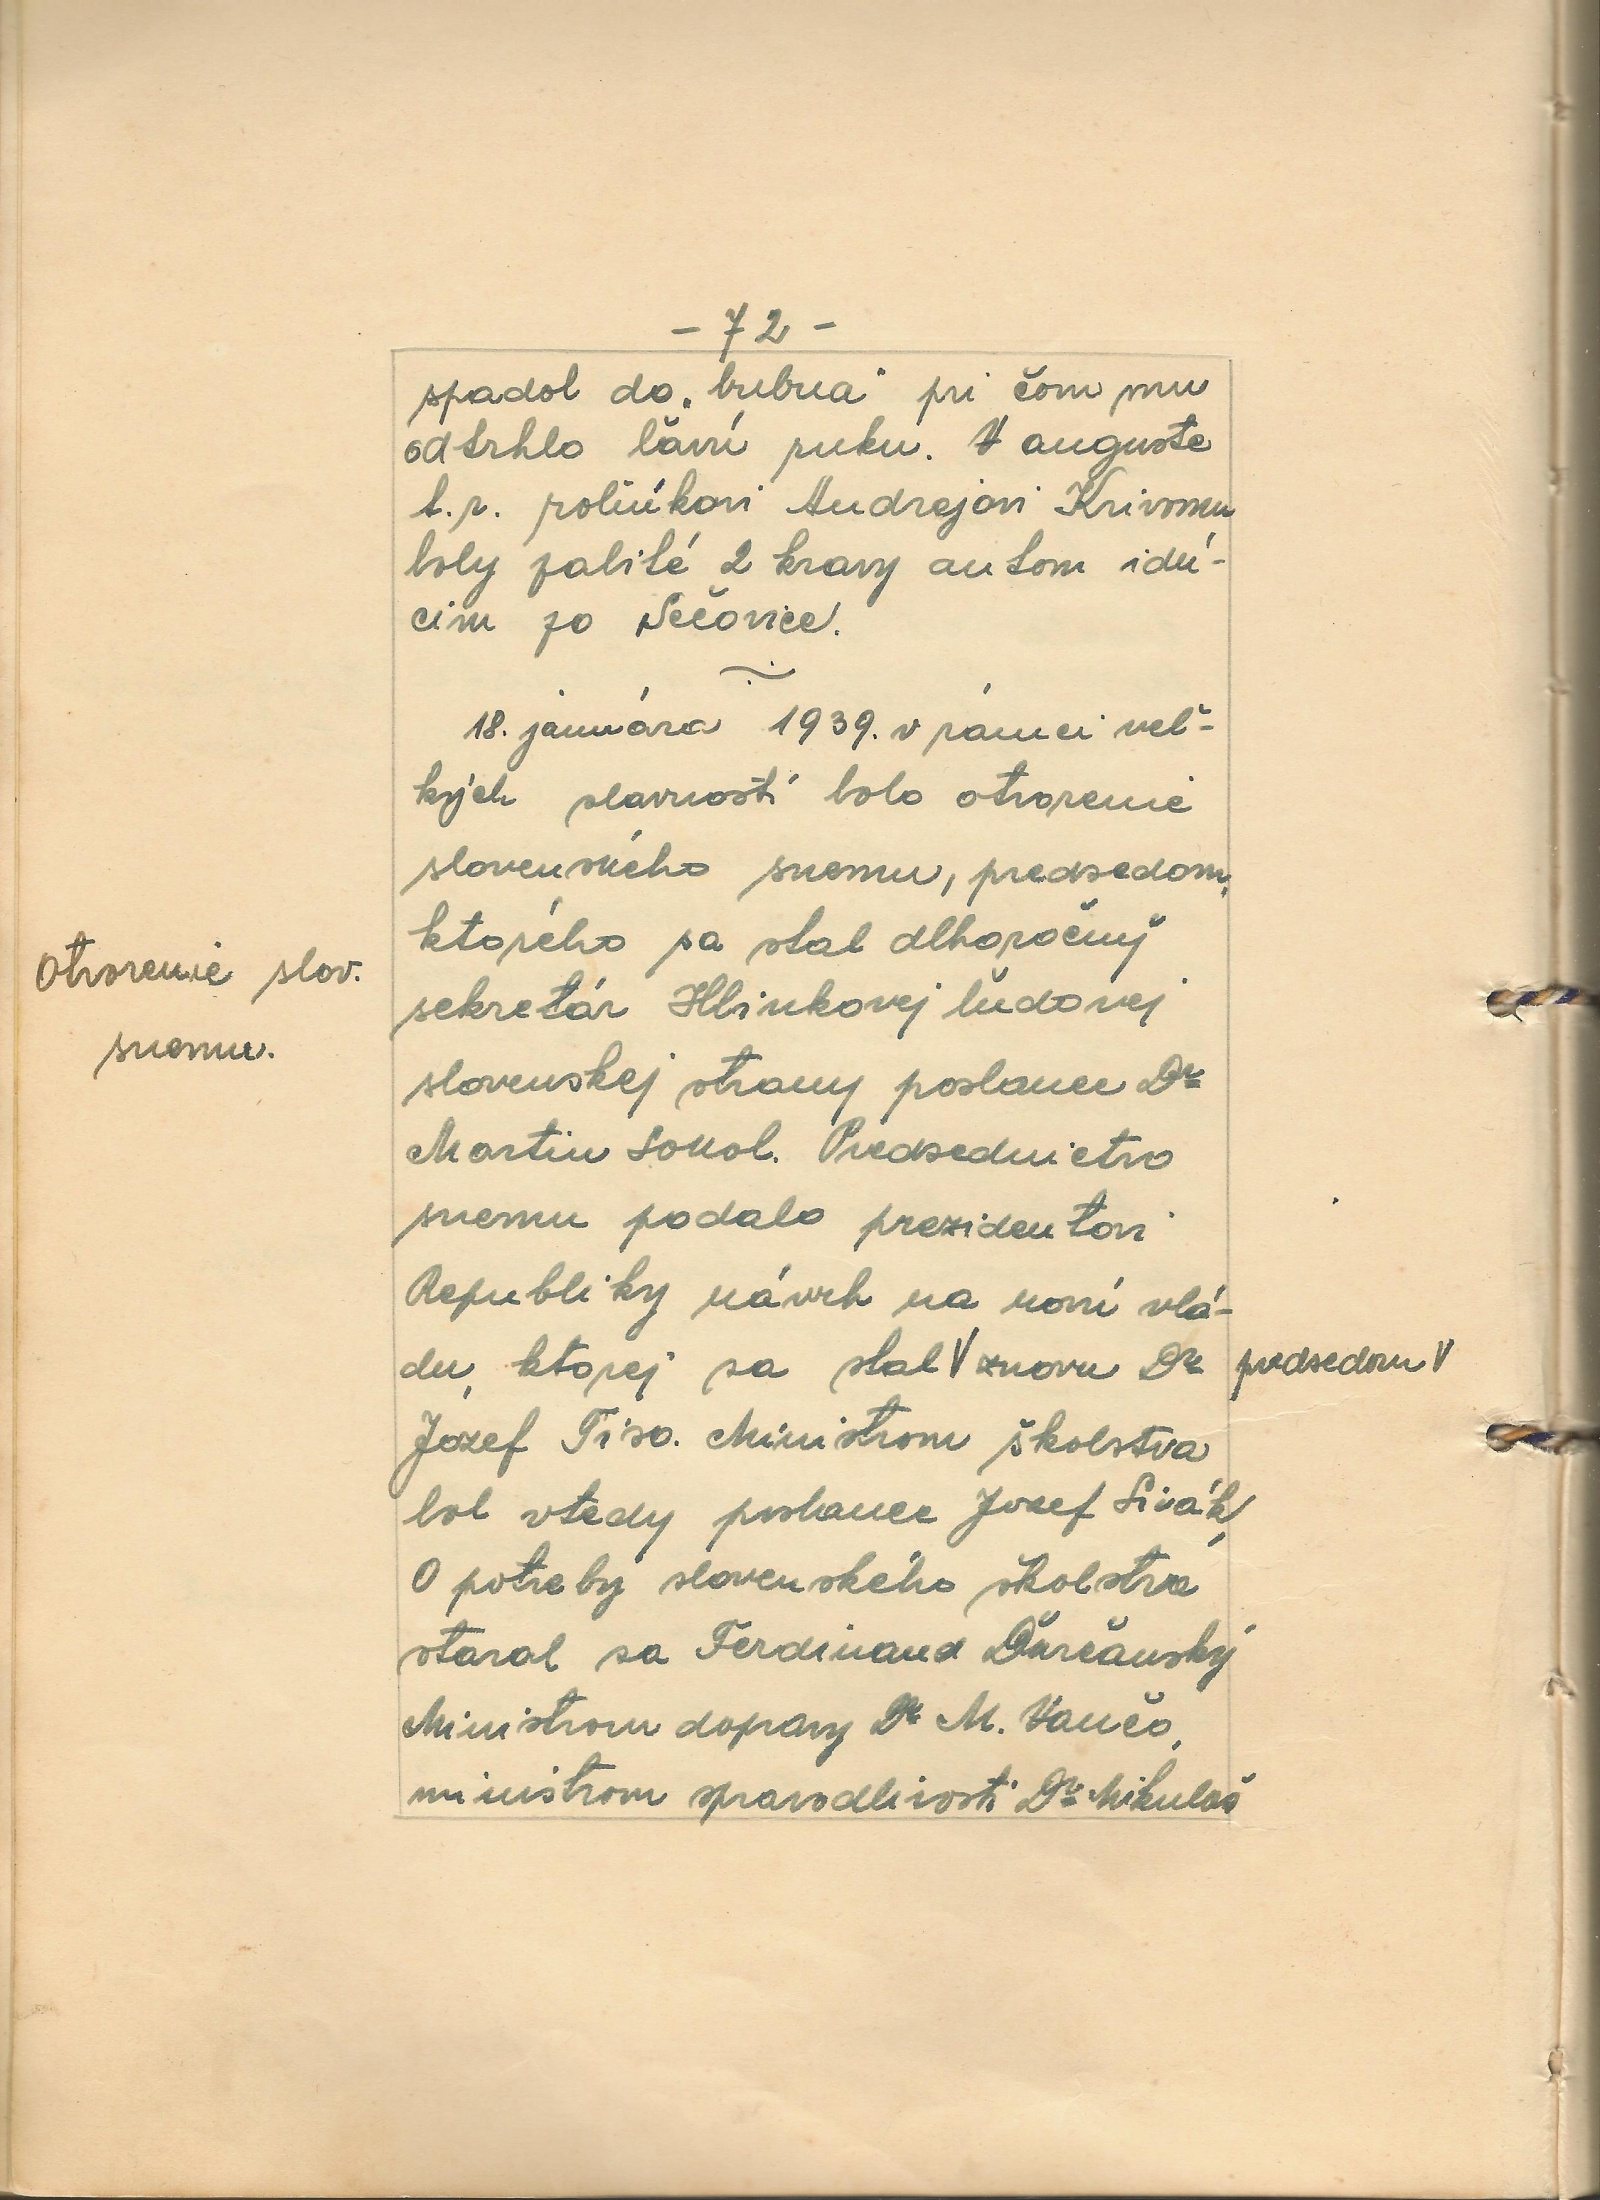 - 72 -
spadol do „bubna" pri čom mu
odtrhlo ľavú ruku. V auguste
t.r. roľníkovi Andrejovi Krivomu
boly zabité 2 kravy autom idú-
cim zo Sečoviec.
18. januára 1939. v rámci veľ-
kých slavností bolo otvorenie
slovenského snemu, predsedom,
ktorého sa stal dlhoročný
Otvorenie slov.
snemu.
sekretár Hlinkovej ľudovej
slovenskej strany poslanec Dr
Martin Sokol. Predsednictvo
snemu podalo prezidentovi
Republiky návrh na novú vlá-
du, ktorej sa stal V znovu Dr predsedom V
Jozef Tiso. Ministrom školstva
bol vtedy poslanec Jozef Sivák,
O potreby slovenského školstva
staral sa Ferdinand Ďurčanský
Ministrom dopravy Dr M. Vančo,
ministrom spravodlivosti Dr Mikuláš